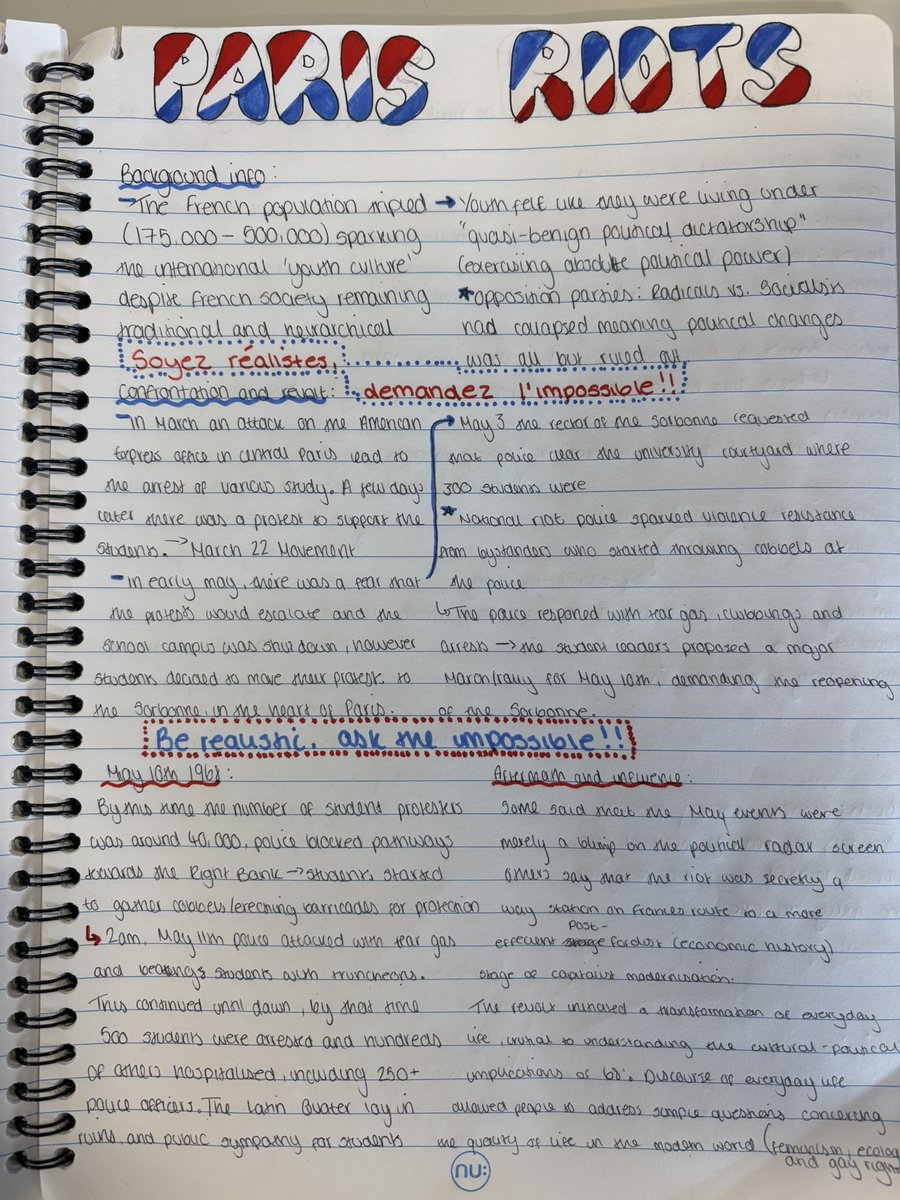 PARIS RIOTS
Background info:
- The French population tripled
(175,000 - 500,000) sparking
the international 'youth culture'
despite French society remaining
traditional and heirarchical
→ Youth felt like they were living under
"quasi-benign political dictatorship"
(exercising absolute political power)
* opposition parties: Radicals vs. Socialists
had collapsed meaning political changes
was all but ruled out
Soyez réalistes,
demandez l'impossible!!
Confrontation and revolt:
- In March an attack on the American
Express office in central Paris lead to
the arrest of various study. A few days
later there was a protest to support the
students. → March 22 Movement
- in early may, there was a fear that
the protests would escalate and the
school campus was shut down, however
students decided to move their protest to
the Sorbonne, in the heart of Paris.
→ May 3 the rector of the Sorbonne requested
that police clear the university courtyard where
300 students were
* National riot police sparked violence resistance
from bystanders who started throwing cobbels at
the police
↳ The police responed with tear gas, clubbings and
arrests → the student leaders proposed a major
March/rally for May 10th, demanding the reopening
of the Sorbonne.
Be realistic, ask the impossible!!
May 10th 1968:
By this time the number of student protesters
was around 40,000, police blocked pathways
towards the Right Bank → students started
to gather cobbels/erecting barricades for protection
↳ 2am, May 11th police attacked with tear gas
and beatings students with truncheons.
This continued until dawn, by that time
500 students were arrested and hundreds
of others hospitalised, including 250+
police officers. The Latin Quater lay in
ruins, and public sympathy for students
Aftermath and influence:
Some said that the May events were
merely a blimp on the political radar screen
others say that the riot was secretly a
way station on Frances route to a more
effecient post-fordist (economic history)
stage of capitalist modernisation.
The revolt initiated a transformation of everyday
life, crucial to understanding the cultural-political
implications of 68'. Discourse of everyday life
allowed people to address simple questions concerning
the quality of life in the modern world (feminism, ecology
and gay rights
nu: